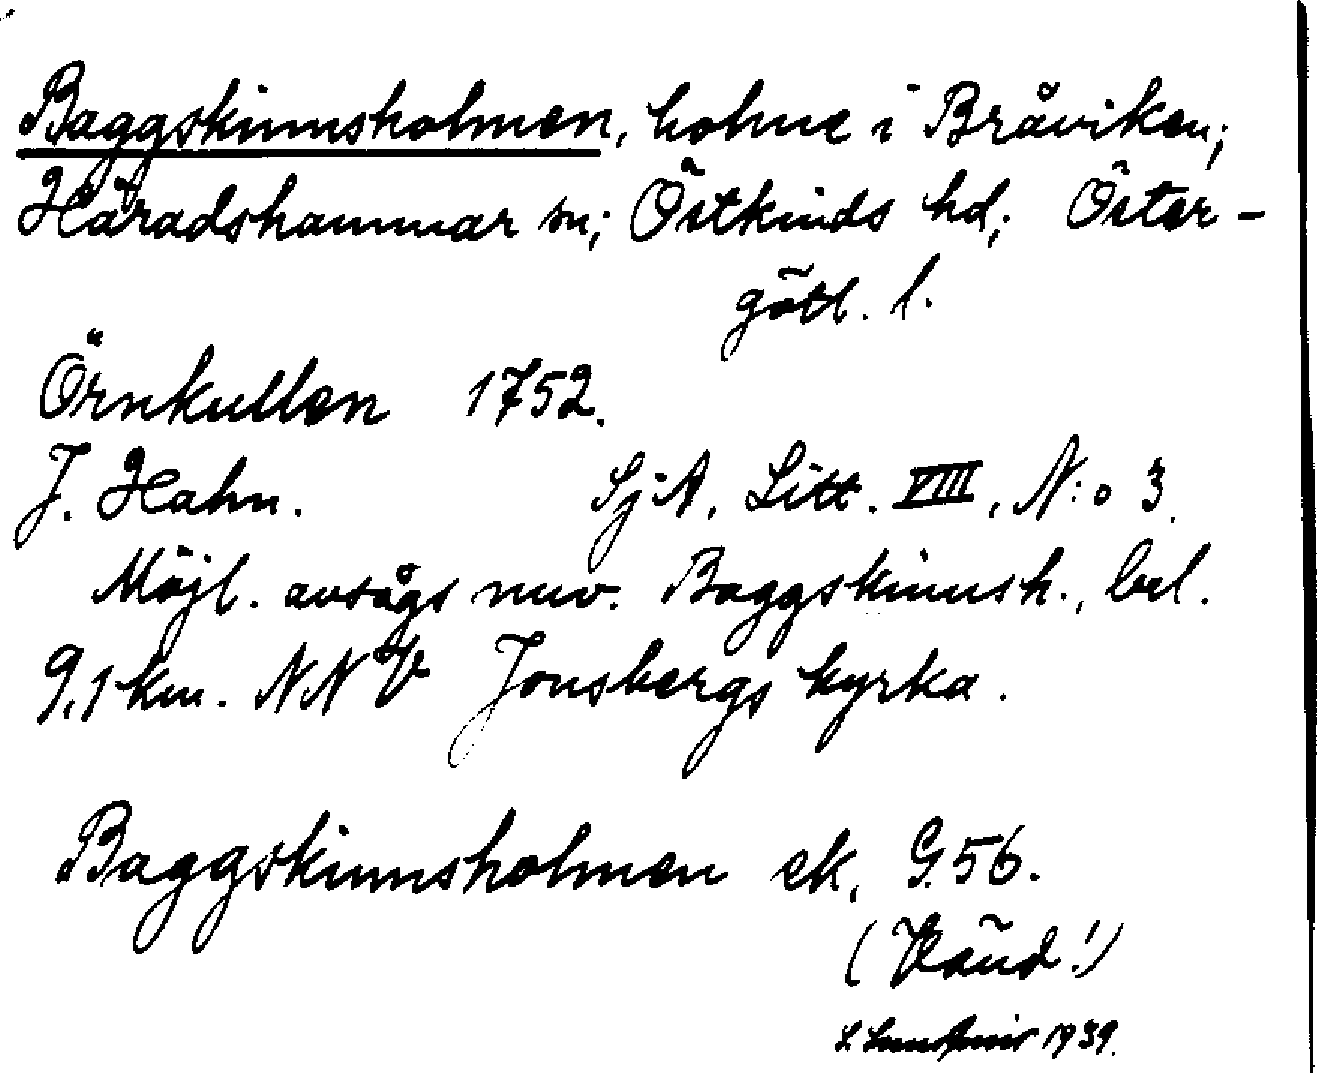 Baggskinnsholmen, holme i Bråviken;
Häradshammar sn; Östkinds hd; Öster-
götl. l.
Örnkullen 1752.
J. Hahn. SjA, Litt. VIII, N:o 3.
Möjl. avsågs nuv. Baggskinnsh., bel.
9,1 km. NNV Jonsbergs kyrka.
Baggskinnsholmen ek. G.56.
(Vänd!)
1939.